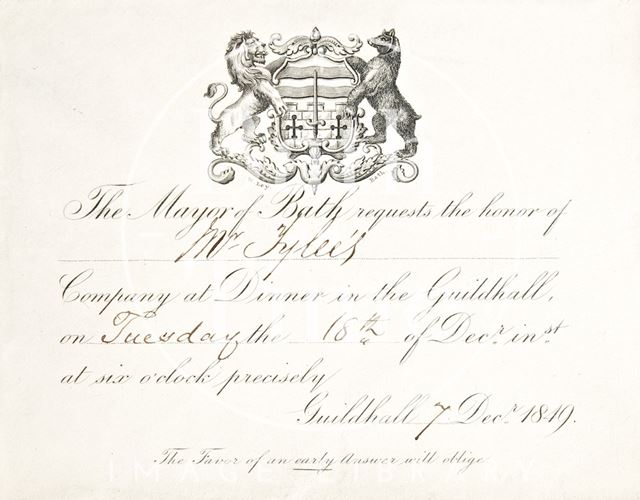 The Mayor of Bath requests the honor of
Mr. Tylee's
Company at Dinner in the Guildhall,
on Tuesday the 18th of Decr. inst
at six o'clock precisely
Guildhall 7 Decr. 1849.
The Favor of an early Answer will oblige